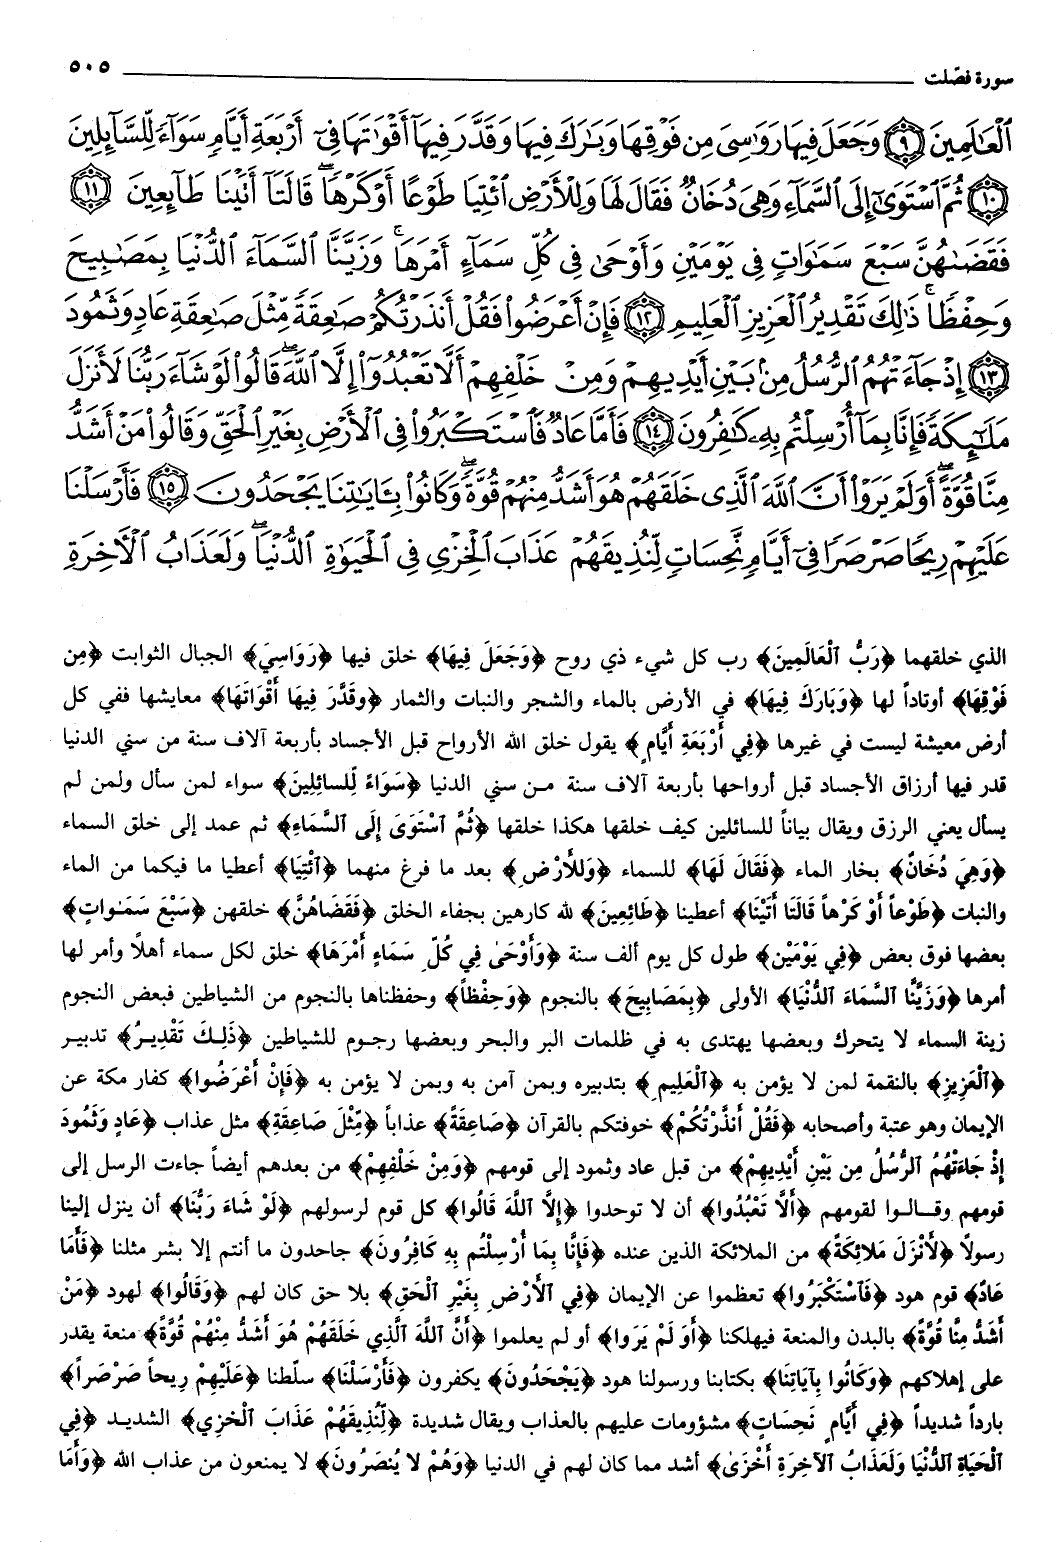 سورة فصّلت ٥٠٥
ٱلْعَٰلَمِينَ ﴿٩﴾ وَجَعَلَ فِيهَا رَوَٰسِىَ مِن فَوْقِهَا وَبَٰرَكَ فِيهَا وَقَدَّرَ فِيهَآ أَقْوَٰتَهَا فِىٓ أَرْبَعَةِ أَيَّامٍ سَوَآءً لِّلسَّآئِلِينَ
﴿١٠﴾ ثُمَّ ٱسْتَوَىٰٓ إِلَى ٱلسَّمَآءِ وَهِىَ دُخَانٌ فَقَالَ لَهَا وَلِلْأَرْضِ ٱئْتِيَا طَوْعًا أَوْ كَرْهًا ۖ قَالَتَآ أَتَيْنَا طَآئِعِينَ ﴿١١﴾
فَقَضَىٰهُنَّ سَبْعَ سَمَٰوَاتٍ فِى يَوْمَيْنِ وَأَوْحَىٰ فِى كُلِّ سَمَآءٍ أَمْرَهَا ۚ وَزَيَّنَّا ٱلسَّمَآءَ ٱلدُّنْيَا بِمَصَٰبِيحَ
وَحِفْظًا ۚ ذَٰلِكَ تَقْدِيرُ ٱلْعَزِيزِ ٱلْعَلِيمِ ﴿١٢﴾ فَإِنْ أَعْرَضُوا۟ فَقُلْ أَنذَرْتُكُمْ صَٰعِقَةً مِّثْلَ صَٰعِقَةِ عَادٍ وَثَمُودَ
﴿١٣﴾ إِذْ جَآءَتْهُمُ ٱلرُّسُلُ مِنۢ بَيْنِ أَيْدِيهِمْ وَمِنْ خَلْفِهِمْ أَلَّا تَعْبُدُوٓا۟ إِلَّا ٱللَّهَ ۖ قَالُوا۟ لَوْ شَآءَ رَبُّنَا لَأَنزَلَ
مَلَٰٓئِكَةً فَإِنَّا بِمَآ أُرْسِلْتُم بِهِۦ كَٰفِرُونَ ﴿١٤﴾ فَأَمَّا عَادٌ فَٱسْتَكْبَرُوا۟ فِى ٱلْأَرْضِ بِغَيْرِ ٱلْحَقِّ وَقَالُوا۟ مَنْ أَشَدُّ
مِنَّا قُوَّةً ۖ أَوَلَمْ يَرَوْا۟ أَنَّ ٱللَّهَ ٱلَّذِى خَلَقَهُمْ هُوَ أَشَدُّ مِنْهُمْ قُوَّةً ۖ وَكَانُوا۟ بِـَٔايَٰتِنَا يَجْحَدُونَ ﴿١٥﴾ فَأَرْسَلْنَا
عَلَيْهِمْ رِيحًا صَرْصَرًا فِىٓ أَيَّامٍ نَّحِسَاتٍ لِّنُذِيقَهُمْ عَذَابَ ٱلْخِزْىِ فِى ٱلْحَيَوٰةِ ٱلدُّنْيَا ۖ وَلَعَذَابُ ٱلْـَٔاخِرَةِ
الذي خلقهما ﴿رَبُّ ٱلْعَالَمِينَ﴾ رب كل شيء ذي روح ﴿وَجَعَلَ فِيهَا﴾ خلق فيها ﴿رَوَاسِيَ﴾ الجبال الثوابت ﴿مِن
فَوْقِهَا﴾ أوتاداً لها ﴿وَبَارَكَ فِيهَا﴾ في الأرض بالماء والشجر والنبات والثمار ﴿وقَدَّرَ فِيهَا أَقْوَاتَهَا﴾ معايشها ففي كل
أرض معيشة ليست في غيرها ﴿فِي أَرْبَعَةِ أَيَّامٍ﴾ يقول خلق الله الأرواح قبل الأجساد بأربعة آلاف سنة من سني الدنيا
قدر فيها أرزاق الأجساد قبل أرواحها بأربعة آلاف سنة من سني الدنيا ﴿سَوَاءً لِّلسائِلِينَ﴾ سواء لمن سأل ولمن لم
يسأل يعني الرزق ويقال بياناً للسائلين كيف خلقها هكذا خلقها ﴿ثُمَّ ٱسْتَوَىَ إِلَى ٱلسَّمَاءِ﴾ ثم عمد إلى خلق السماء
﴿وَهِيَ دُخَانٌ﴾ بخار الماء ﴿فَقَالَ لَهَا﴾ للسماء ﴿وَللأَرْضِ﴾ بعد ما فرغ منهما ﴿ٱئْتِيَا﴾ أعطيا ما فيكما من الماء
والنبات ﴿طَوْعاً أَوْ كَرْهاً قَالَتَا أَتَيْنَا﴾ أعطينا ﴿طَائِعِينَ﴾ لله كارهين بجفاء الخلق ﴿فَقَضَاهُنَّ﴾ خلقهن ﴿سَبْعَ سَمَـٰواتٍ﴾
بعضها فوق بعض ﴿فِي يَوْمَيْن﴾ طول كل يوم ألف سنة ﴿وَأَوْحَىٰ فِي كُلِّ سَمَاءٍ أَمْرَهَا﴾ خلق لكل سماء أهلاً وأمر لها
أمرها ﴿وَزَيَّنَّا ٱلسَّمَاءَ ٱلدُّنْيَا﴾ الأولى ﴿بِمَصَابِيحَ﴾ بالنجوم ﴿وَحِفْظاً﴾ وحفظناها بالنجوم من الشياطين فبعض النجوم
زينة السماء لا يتحرك وبعضها يهتدى به في ظلمات البر والبحر وبعضها رجوم للشياطين ﴿ذَلِكَ تَقْدِيرُ﴾ تدبير
﴿ٱلْعَزِيزِ﴾ بالنقمة لمن لا يؤمن به ﴿ٱلْعَلِيمِ﴾ بتدبيره وبمن آمن به وبمن لا يؤمن به ﴿فَإِنْ أَعْرَضُوا﴾ كفار مكة عن
الإيمان وهو عتبة وأصحابه ﴿فَقُلْ أَنذَرْتُكُمْ﴾ خوفتكم بالقرآن ﴿صَاعِقَةً﴾ عذاباً ﴿مِّثْلَ صَاعِقَةِ﴾ مثل عذاب ﴿عَادٍ وَثَمُودَ
إِذْ جَاءَتْهُمُ ٱلرُّسُلُ مِن بَيْنِ أَيْدِيهِمْ﴾ من قبل عاد وثمود إلى قومهم ﴿وَمِنْ خَلْفِهِمْ﴾ من بعدهم أيضاً جاءت الرسل إلى
قومهم وقالوا لقومهم ﴿أَلَّا تَعْبُدُوا﴾ أن لا توحدوا ﴿إِلَّا اللَّهَ قَالُوا﴾ كل قوم لرسولهم ﴿لَوْ شَاءَ رَبُّنَا﴾ أن ينزل إلينا
رسولاً ﴿لأَنْزَلَ مَلائِكَةً﴾ من الملائكة الذين عنده ﴿فَإِنَّا بِمَا أُرْسِلْتُم بِهِ كَافِرُونَ﴾ جاحدون ما أنتم إلا بشر مثلنا ﴿فَأَمَا
عَادٌ﴾ قوم هود ﴿فَٱسْتَكْبَرُوا﴾ تعظموا عن الإيمان ﴿فِي ٱلأَرْضِ بِغَيْرِ ٱلْحَقِ﴾ بلا حق كان لهم ﴿وَقَالُوا﴾ لهود ﴿مَنْ
أَشَدُّ مِنَّا قُوَّةً﴾ بالبدن والمنعة فيهلكنا ﴿أَوَ لَمْ يَرَوا﴾ أو لم يعلموا ﴿أَنَّ اللَّهَ ٱلَّذِي خَلَقَهُمْ هُوَ أَشَدُّ مِنْهُمْ قُوَّةً﴾ منعة يقدر
على إهلاكهم ﴿وَكَانُوا بِآيَاتِنَا﴾ بكتابنا ورسولنا هود ﴿يَجْحَدُونَ﴾ يكفرون ﴿فَأَرْسَلْنَا﴾ سلّطنا ﴿عَلَيْهِمْ رِيحاً صَرْصَراً﴾
بارداً شديداً ﴿فِي أَيَّامٍ نَحِسَاتٍ﴾ مشؤومات عليهم بالعذاب ويقال شديدة ﴿لِّنُذِيقَهُمْ عَذَابَ ٱلْخزِي﴾ الشديد ﴿فِي
ٱلْحَيَاةِ ٱلدُّنْيَا وَلَعَذَابُ ٱلآخِرَةِ أَخْزَىٰ﴾ أشد مما كان لهم في الدنيا ﴿وَهُمْ لا يُنصَرُونَ﴾ لا يمنعون من عذاب الله ﴿وَأَمَا